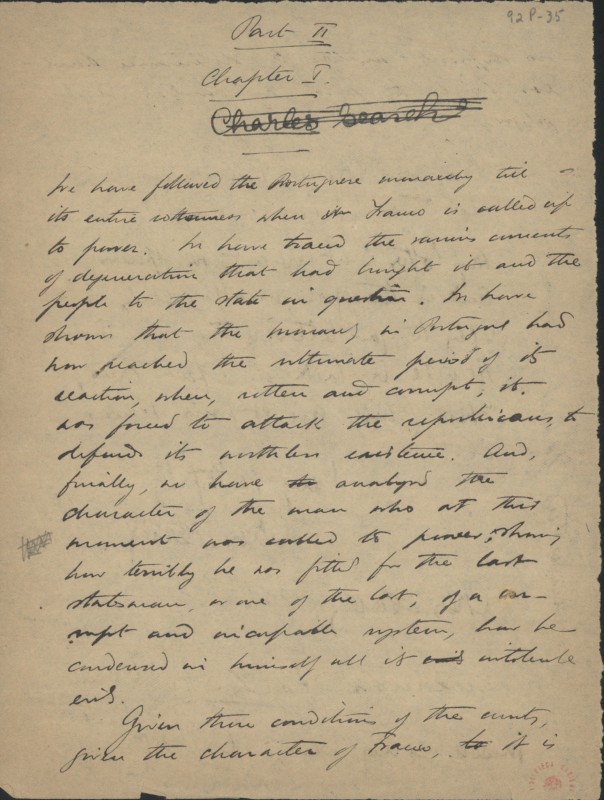 92P-35
Part II
Chapter I.
Charles Search
We have followed the Portuguese monarchy till
its entire rottenness when Franco is called up
to power. We have traced the various currents
of degeneration that had brought it and the
people to the state in question. We have
shown that the monarchy in Portugal had
now reached the ultimate period of its
reaction, when, rotten and corrupt, it
was forced to attack the republicans, to
defend its worthless existence. And,
finally, we have analysed the
character of the man who at this
moment was called to power, showing
how terribly he was fitted for the last
statesman, or one of the last, of a cor-
rupt and incapable system, how he
condensed in himself all its intolerable
evils.
Given these conditions of the events,
given the character of Franco, to it is